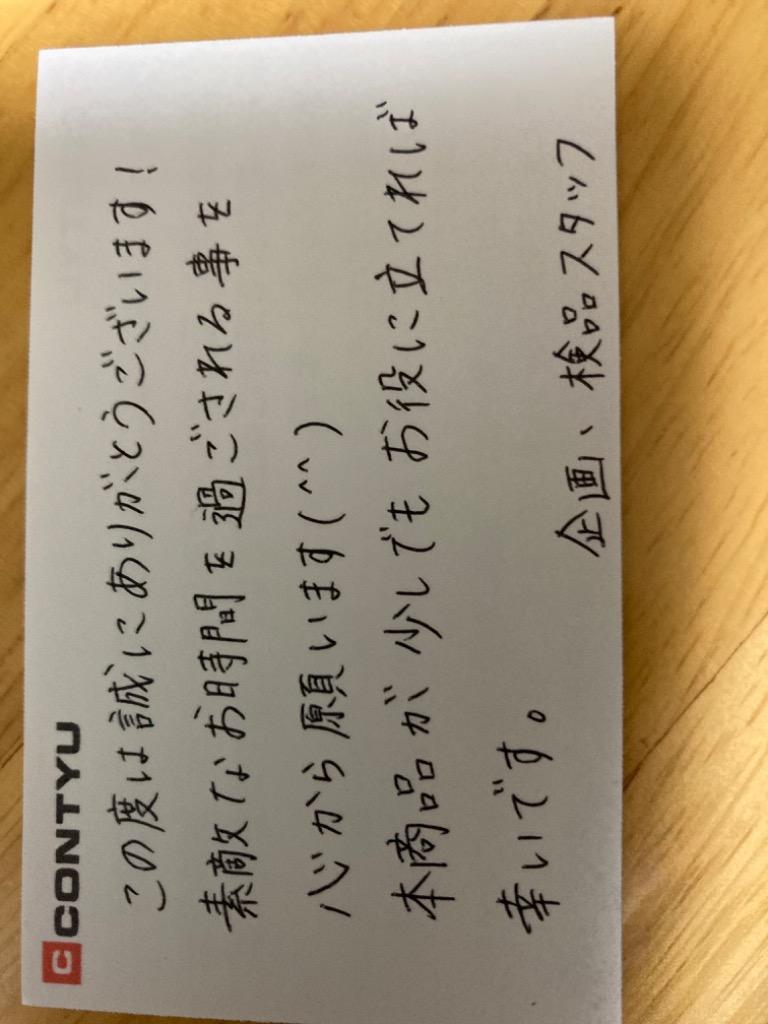 C CONTYU
この度は誠にありがとうございます!
素敵なお時間を過ごされる事を
心から願います(^^)
本商品が少しでもお役に立てれば
幸いです。
企画、検品スタッフ